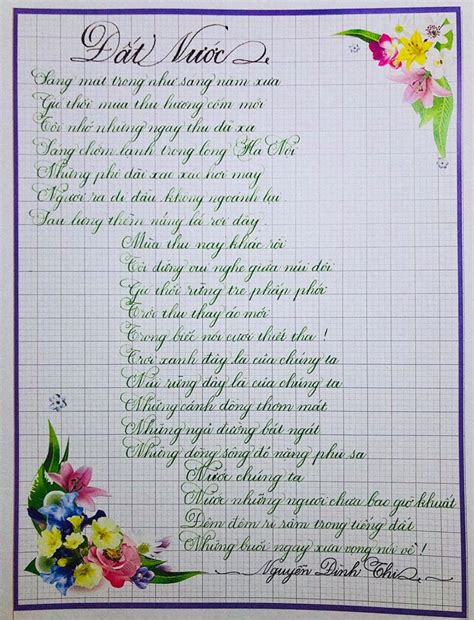 Đất Nước
Sáng mát trong như sáng năm xưa
Gió thổi mùa thu hương cốm mới
Tôi nhớ những ngày thu đã xa
Sáng chớm lạnh trong lòng Hà Nội
Những phố dài xao xác hơi may
Người ra đi đầu không ngoảnh lại
Sau lưng thềm nắng lá rơi đầy
Mùa thu nay khác rồi
Tôi đứng vui nghe giữa núi đồi
Gió thổi rừng tre phấp phới
Trời thu thay áo mới
Trong biếc nói cười thiết tha !
Trời xanh đây là của chúng ta
Núi rừng đây là của chúng ta
Những cánh đồng thơm mát
Những ngả đường bát ngát
Những dòng sông đỏ nặng phù sa
Nước chúng ta
Nước những người chưa bao giờ khuất
Đêm đêm rì rầm trong tiếng đất
Những buổi ngày xưa vọng nói về !
Nguyễn Đình Thi